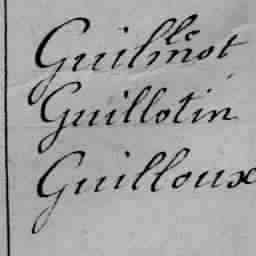 Guillemot
Guillotin
Guilloux